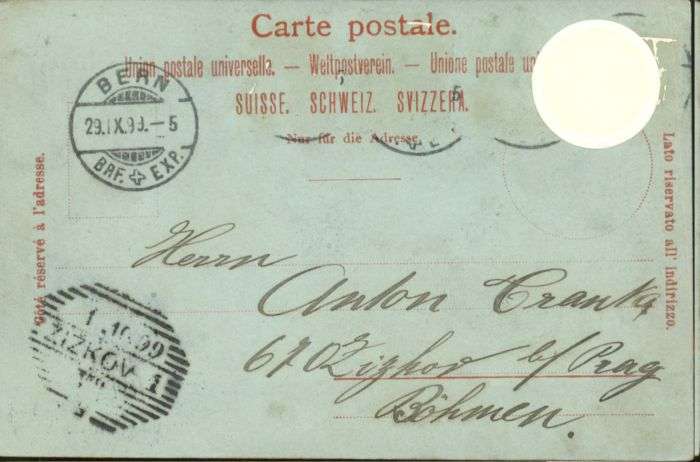 Carte postale.
Union postale universelle. — Weltpostverein. — Unione postale uni
SUISSE. SCHWEIZ. SVIZZERA.
Nur für die Adresse.
BERN
29.IX.99.–5
BRF. EXP.
Côté réservé à l'adresse.
Lato riservato all' indirizzo.
Herrn
Anton
670 Zizkov b/ Prag
Böhmen.
1.10.99
ZIZKOV 1